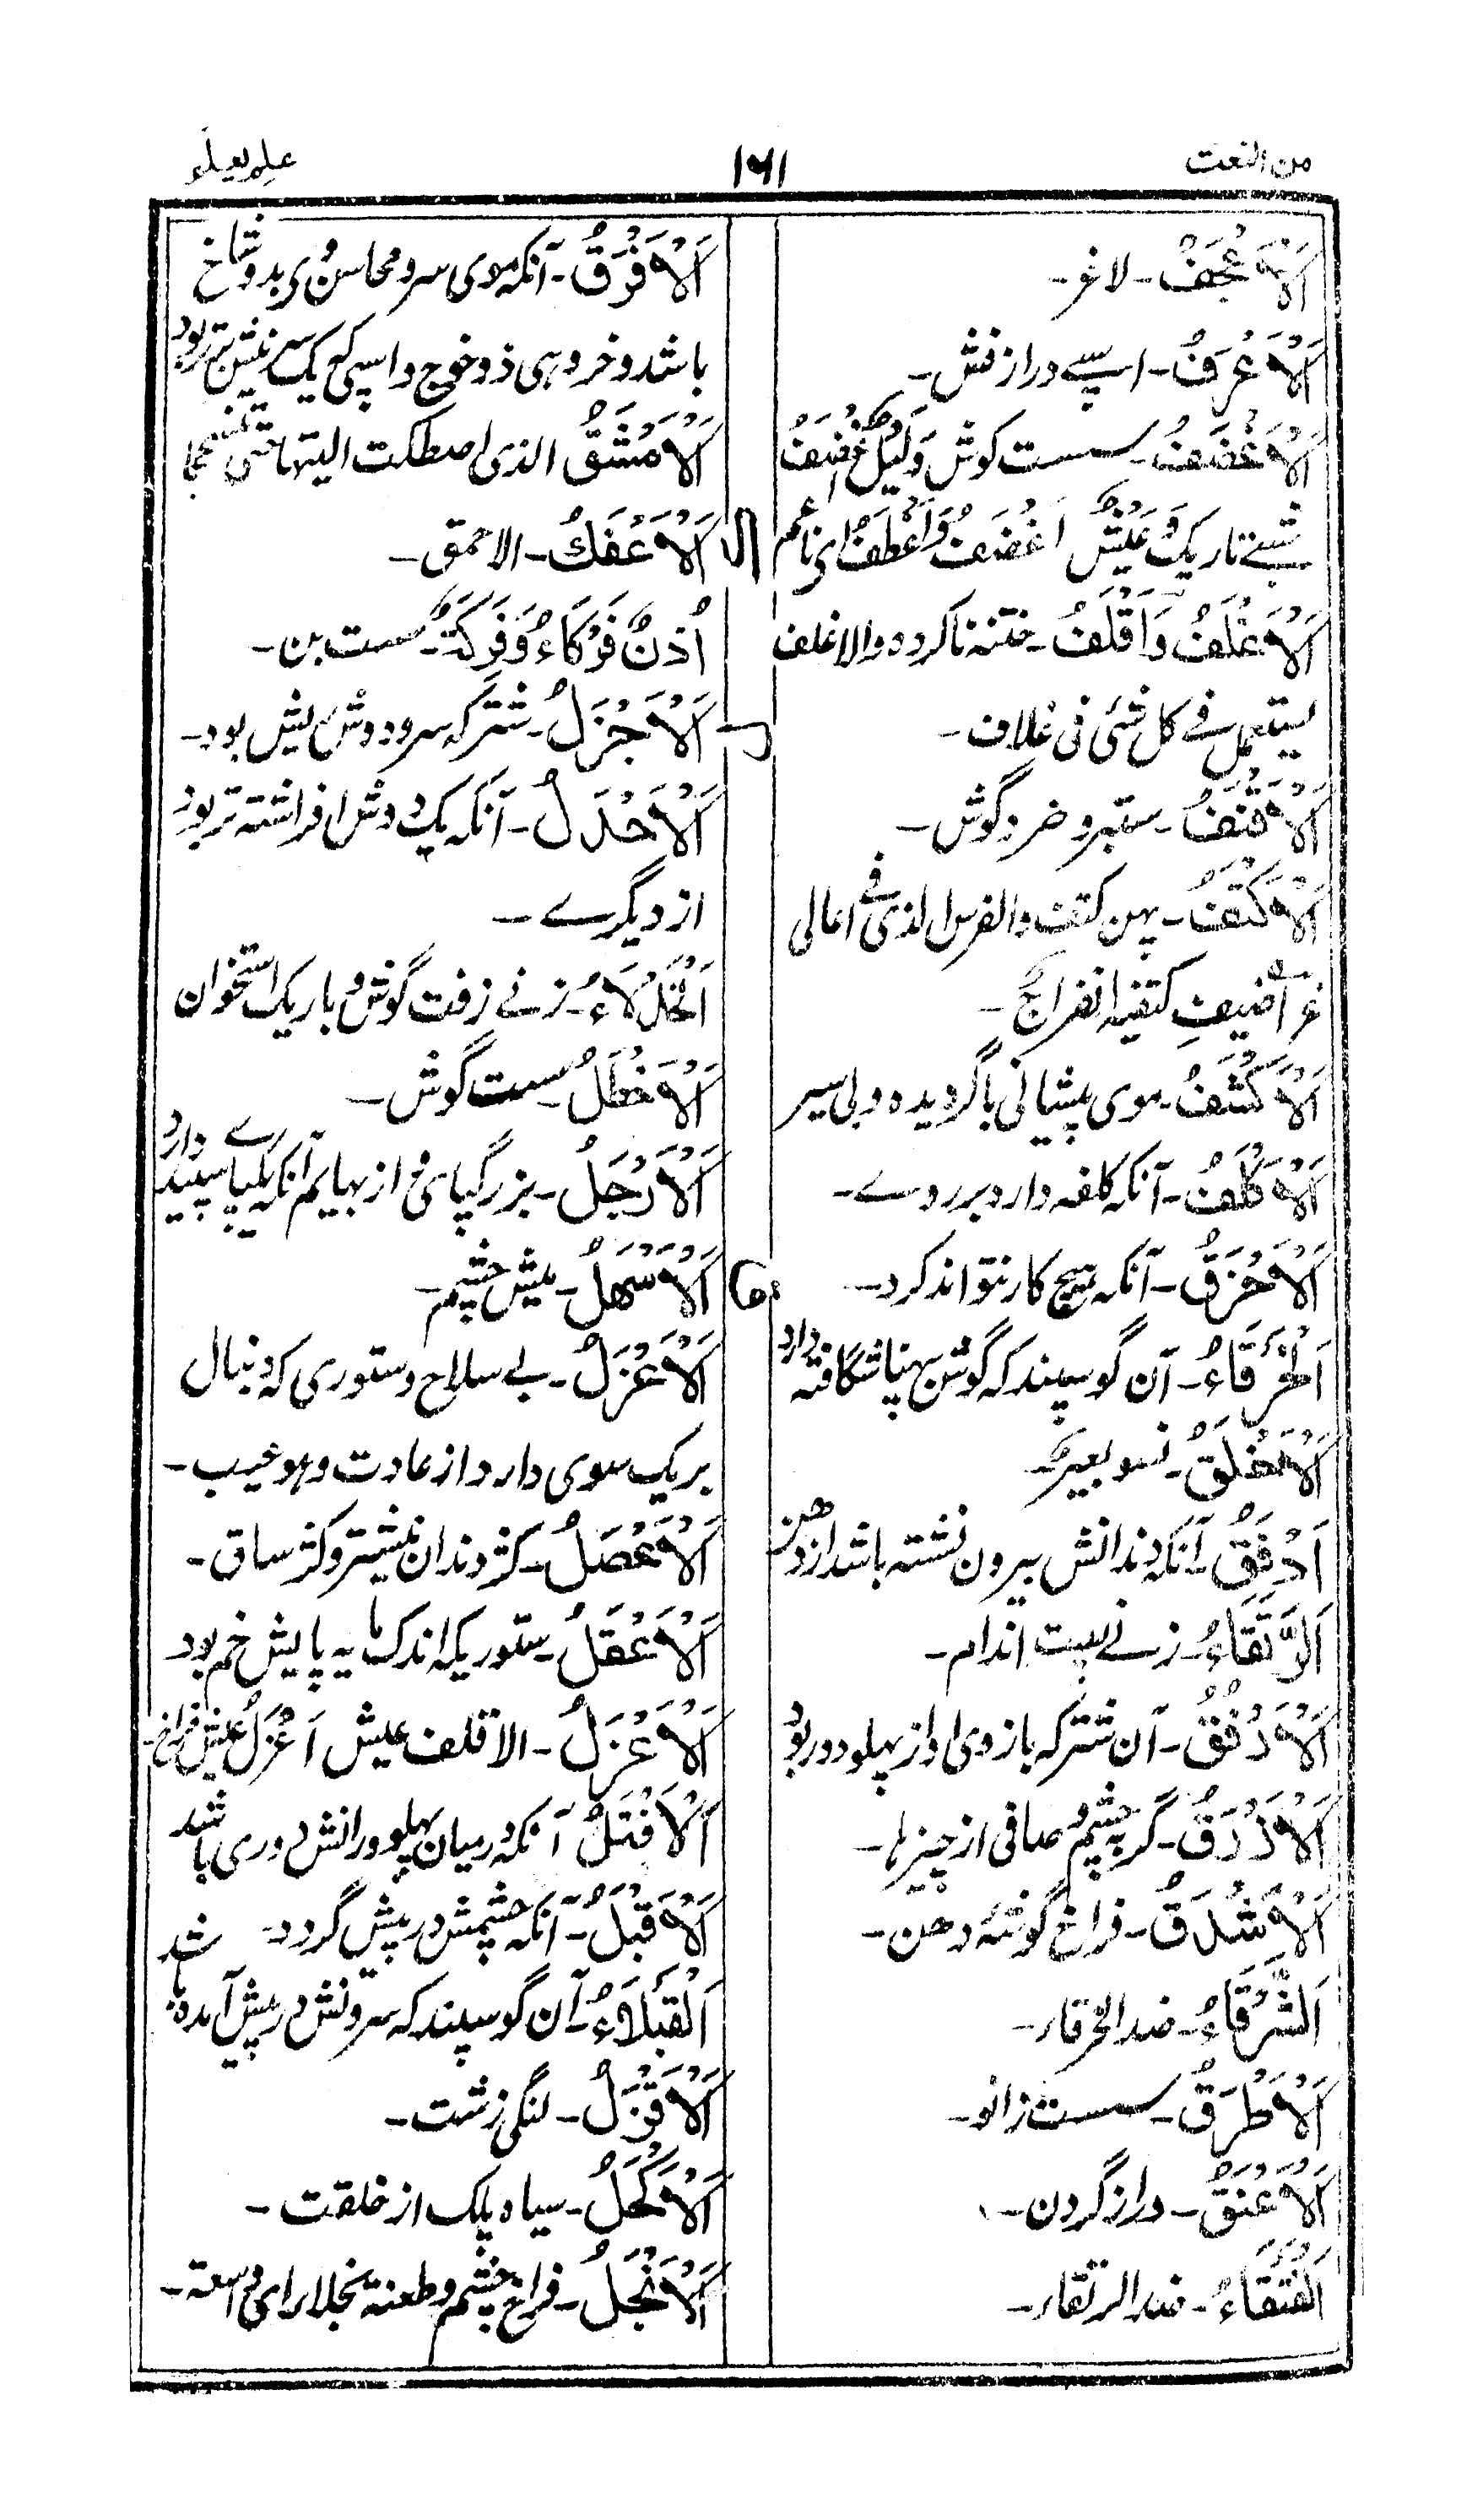 من النعت
١٦١
علم يعلم
اَلْاَعْجَفُ - لاغر -
اَلْاَعْرَفُ - اسپے دراز فش -
اَلْاَغْضَفُ - سست گوش وَلَيْلٌ اَغْضَفُ
شبے تاریک وَعَيْشٌ اَغْضَفُ وَاَغْطَفُ ای ناعم
اَلْاَغْلَفُ وَاَقْلَفُ - ختنه ناکرده والاغلف
یستعمل فے کل شئی فی غلاف -
اَلْاَقْنَفُ - ستبر و خرد گوش -
اَلْاَكْتَفُ - پهن کتف والفرس الذی فے اعالی
غراضیف کتفیه انفراج -
اَلْاَكْشَفُ - موی پیشانی باگردیده و بی سپر
اَلْاَكْلَفُ - آنکه کلفه دارد بر روے -
اَلْاَخْرَقُ - آنکه هیچ کار نتواند کرد -
اَلْخَرْقَاءُ - آن گوسپند که گوش بهنا شگافته دارد
اَلْاَخْلَقُ - نسو
اَدْفَقُ - آنکه دندانش بیرون نشسته باشد از دهن
اَلرَّتْقَاءُ - زنے بست اندام -
اَلْاَدْفَقُ - آن شتر که بازوی او از پهلو دور بود
اَلْاَزْرَقُ - گربه چشم و صافی از چیزها -
اَلْاَشْدَقُ - فراخ گوشهٔ دهن -
اَلشَّرْقَاءُ - ضد الخرقاء -
اَلْاَطْرَقُ - سست زانو -
اَلْاَعْنَقُ - دراز گردن -
اَلْفَتْقَاءُ - ضد الرتقاء -
اَلْاَفْرَقُ - آنکه موی سر و محاسن وی بدو شاخ
باشد و خروهی ذو خوچ و اسپی که یک سرینش برتر بود
اَلْاَمْشَقُ الذی اصطکت الیتاه حتی تنسحجا
ك
اَلْاَعْفَكُ - الاحمق -
اُذُنٌ فَرْكَاءُ وَفَرِكَةٌ - سست بن -
ل
اَلْاَجْزَلُ - شتر که سر و دوش ریش بود -
اَلْاَحْدَلُ - آنکه یک دوش او فراشته تر بود
از دیگرے -
اَلْخَدْلَاءُ - زنے زفت گوشت و باریک استخوان
اَلْاَخْطَلُ - سست گوش -
اَلْاَرْجَلُ - بزرگ پای و از بهایم آنکه یک پاے سپید دارد
اَلْاَشْهَلُ - میش چشم -
اَلْاَعْزَلُ - بے سلاح و ستوری که دنبال
بریک سوی دارد از عادت وهو عیب -
اَلْاَعْصَلُ - کژ دندان نیشتر و کژ ساق -
اَلْاَعْقَلُ - ستوریکه اندک مایه پایش خم بود
اَلْاَغْرَلُ - الاقلف عیش اَغْرَلُ عیش فراخ -
اَلْاَفْتَلُ آنکه در میان پهلو و رانش دوری باشد
اَلْاَقْبَلُ - آنکه چشمش در پیش گردد -
اَلْقَبْلَاءُ - آن گوسپند که سرونش در پیش آمده باشد
اَلْاَقْزَلُ - لنگی زشت -
اَلْاَكْحَلُ - سیاه پلک از خلقت -
اَلْاَنْجَلُ - فراخ چشم و طعنة نجلاء ای واسعة -